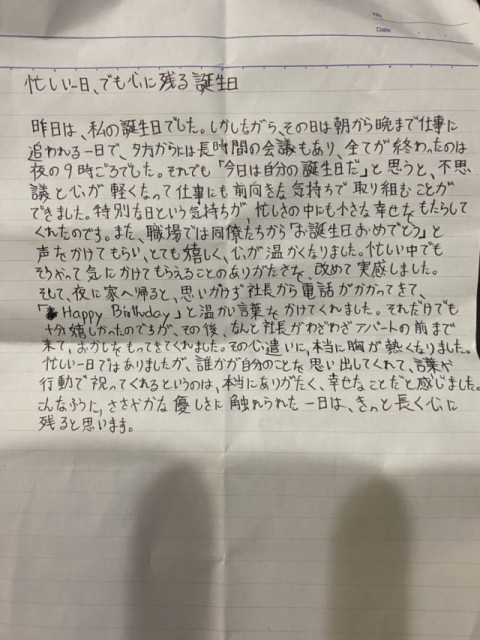 No.
Date
忙しい一日、でも心に残る誕生日
昨日は、私の誕生日でした。しかしながら、その日は朝から晩まで仕事に
追われる一日で、夕方からには長時間の会議もあり、全てが終わったのは
夜の9時ごろでした。それでも「今日は自分の誕生日だ」と思うと、不思
議と心が軽くなって仕事にも前向きな気持ちで取り組むことが
できました。特別な日という気持ちが、忙しさの中にも小さな幸せをもたらして
くれたのです。また、職場では同僚たちから「お誕生日おめでとう」と
声をかけてもらい、とても嬉しく、心が温かくなりました。忙しい中でも
そうやって気にかけてもらえることのありがたさを、改めて実感しました。
そして、夜に家へ帰ると、思いがけず社長から電話がかかってきて、
「Happy Birthday」と温かい言葉をかけてくれました。それだけでも
十分嬉しかったのですが、その後、なんと社長がわざわざアパートの前まで
来て、おかしをもってきてくれました。その心遣いに、本当に胸が熱くなりました。
忙しい一日ではありましたが、誰かが自分のことを思い出してくれて、言葉や
行動で祝ってくれるというのは、本当にありがたく、幸せなことだと感じました。
こんなふうに、ささやかな優しさに触れられた一日は、きっと長く心に
残ると思います。